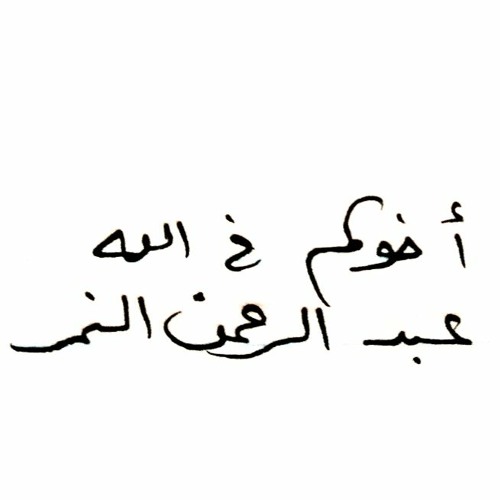 أخوكم في الله
عبد الرحمن النمر